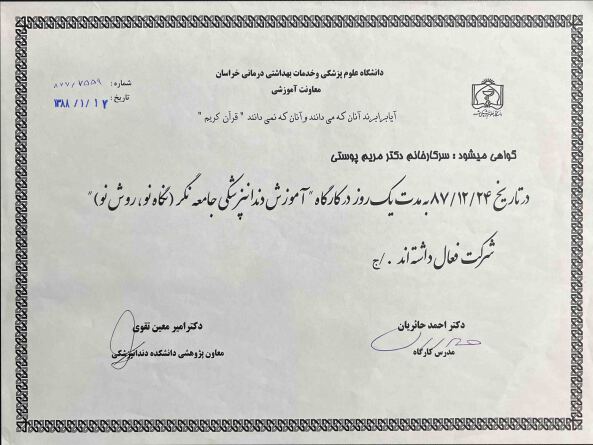 دانشگاه علوم پزشکی و خدمات بهداشتی درمانی خراسان
معاونت آموزشی
شماره: ۸۷۷/۷۵۵۹
تاریخ: ۱۳۸۸/۱/۱۷
آیا برابرند آنان که می دانند و آنان که نمی دانند " قرآن کریم "
گواهی میشود : سرکارخانم دکتر مریم پوستی
در تاریخ ۸۷/۱۲/۲۴ به مدت یک روز در کارگاه "آموزش دندانپزشکی جامعه نگر (نگاه نو، روش نو)"
شرکت فعال داشته اند ۰/ج
دکتر احمد حائریان
مدرس کارگاه
دکتر امیر معین تقوی
معاون پژوهشی دانشکده دندانپزشکی